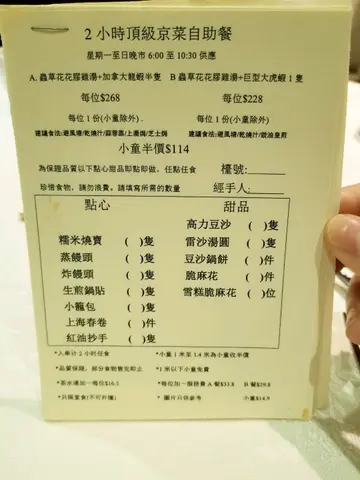 2 小時頂級京菜自助餐
星期一至日晚市 6:00 至 10:30 供應
A. 蟲草花花膠雞湯+加拿大龍蝦半隻 B 蟲草花花膠雞湯+巨型大虎蝦 1 隻
每位$268 每位$228
每位 1 份(小童除外). 每位 1 份(小童除外)
建議食法:避風塘/乾燒汁/蒜蓉蒸/上湯焗/芝士焗 建議食法:避風塘/乾燒汁/豉油皇煎
小童半價$114
為保證品質以下點心甜品即點即做，任點任食 檯號:
珍惜食物，請勿浪費。請填寫所需的數量 經手人:
點心 甜品
高力豆沙 ( )隻
糯米燒賣 ( )隻 雷沙湯圓 ( )隻
蒸饅頭 ( )隻 豆沙鍋餅 ( )件
炸饅頭 ( )隻 脆麻花 ( )件
生煎鍋貼 ( )隻 雪糕脆麻花 ( )位
小籠包 ( )隻
上海春卷 ( )件
紅油抄手 ( )隻
*入座計 2 小時任食 *小童 1 米至 1.4 米為小童收半價
*品質保證，部份食物售完即止 *1 米以下小童免費
*茶水連加一每位$16.5 *每位加一服務費 A 餐$33.8 B 餐$29.8
*只限堂食(不可外賣) * 圖片只供參考 小童$14.9